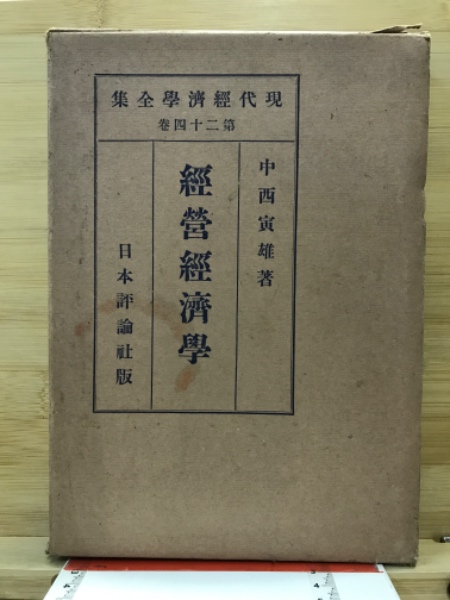 現代經濟學全集
第二十四卷
中西寅雄著
經營經濟學
日本評論社版